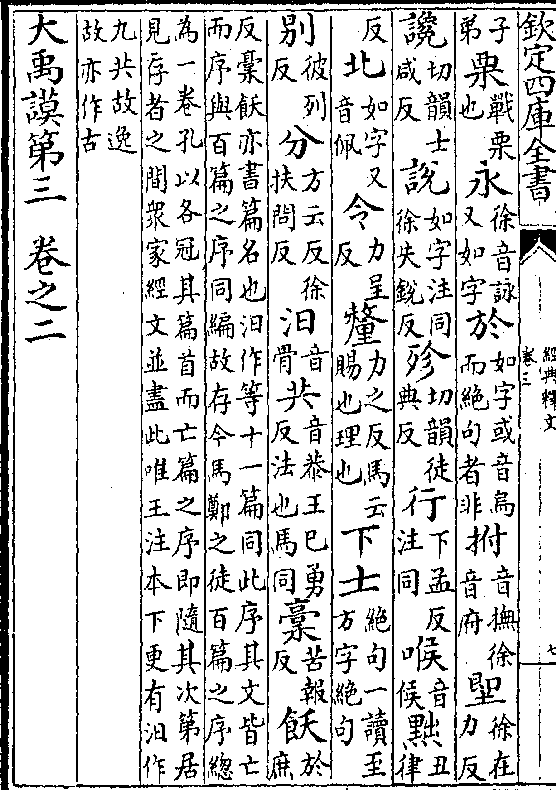 欽定四庫全書
經典釋文
卷三
七
子弟栗戰栗也永徐音詠又如字於如字或音烏而絕句者非拊音撫徐音府堲徐在力反
讒切韻士咸反說如字注同徐失銳反殄切韻徒典反行下孟反注同喉音候黜丑律
反北如字又音佩令力呈反釐力之反馬云賜也理也下士絕句一讀至方字絕句
別彼列反分方云反徐扶問反汩音骨共音恭王已勇反法也馬同稾苦報反飫於庶
反稾飫亦書篇名也汩作等十一篇同此序其文皆亡
而序與百篇之序同編故存今馬鄭之徒百篇之序總
為一卷孔以各冠其篇首而亡篇之序即隨其次第居
見存者之間衆家經文並盡此唯王注本下更有汩作
九共故逸
故亦作古
大禹謨第三 卷之二